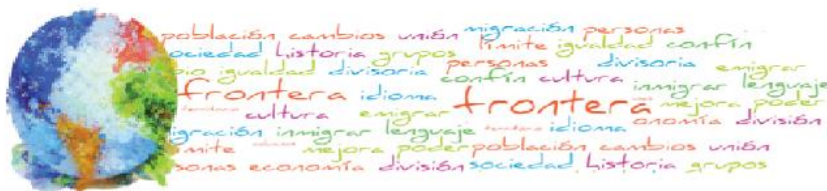 población cambios unión migración personas
ociedad historia grupos límite igualdad confín
bio igualdad divisoria personas divisoria emigrar
confín cultura inmigrar lenguaje
frontera idioma frontera mejora poder
cultura emigrar onomía división
igración inmigrar lenguaje idioma
ímite mejora poder población cambios unión
sonas economía división sociedad historia grupos